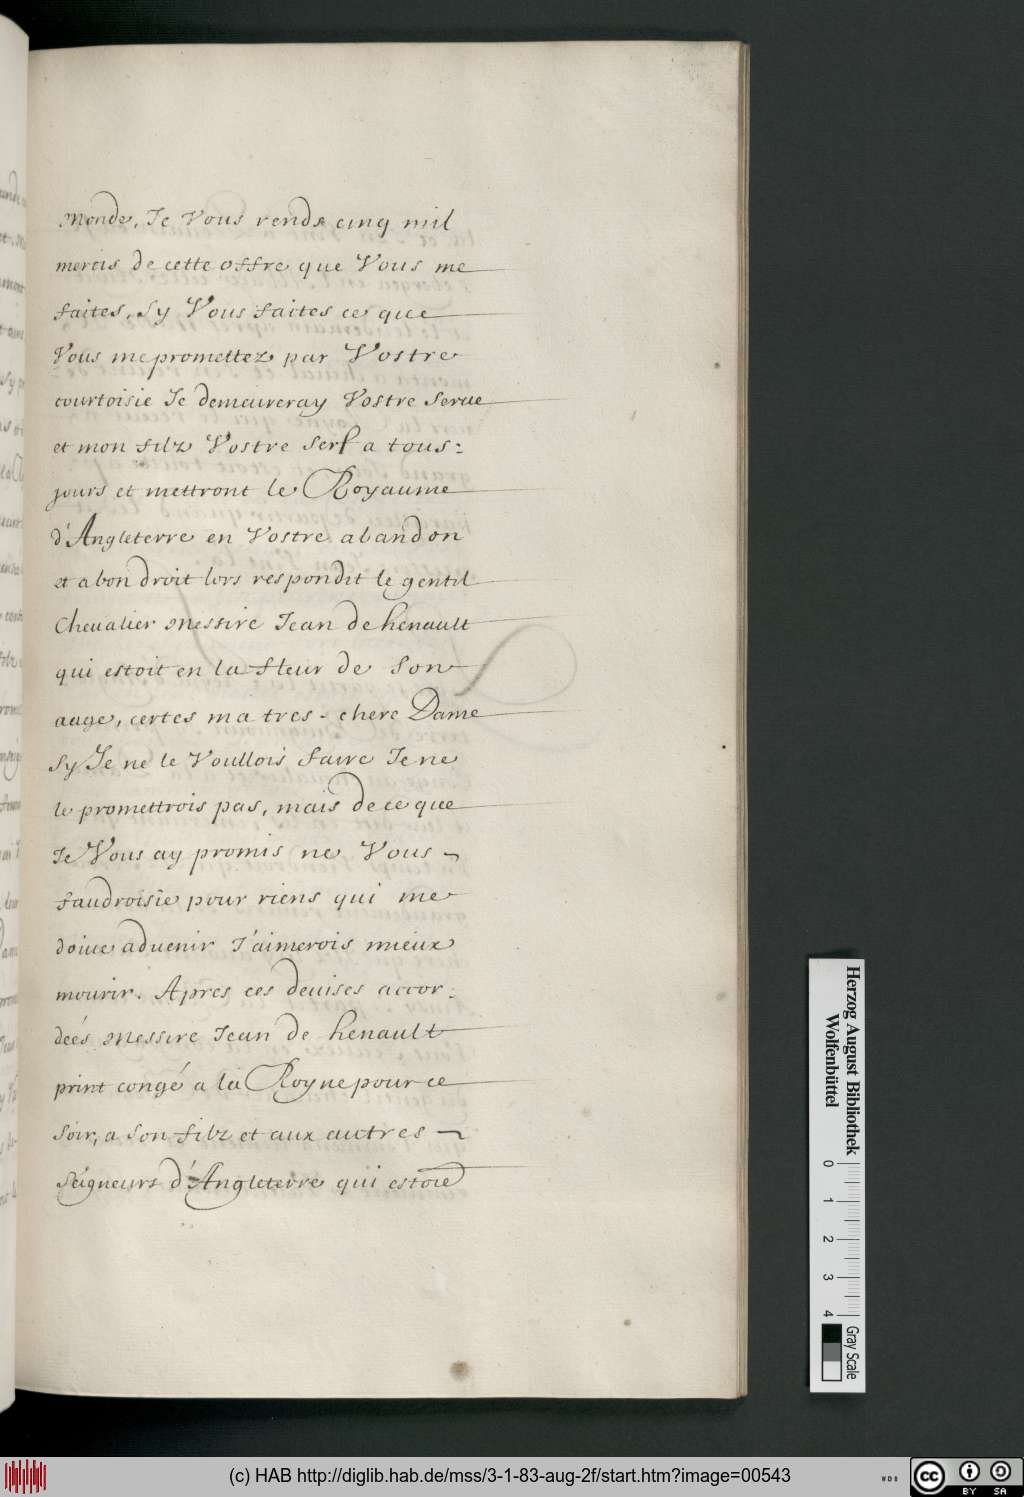 monde, Je Vous rends cinq mil
mercis de cette offre que Vous me
faites, sy Vous faites ce que
Vous me promettez par Vostre
courtoisie Je demeureray Vostre serue
et mon filz Vostre serf a tous:
jours et mettront le Royaume
d'Angleterre en Vostre abandon
et a bon droit lors respondit le gentil
Cheualier messire Jean de henault
qui estoit en la fleur de son
aage, certes ma tres-chere Dame
sy Je ne le Voullois faire Je ne
le promettrois pas, mais de ce que
Je Vous ay promis ne Vous ¬
faudroisie pour riens qui me
doiue aduenir J'aimerois mieux
mourir. Apres ces deuises accor:
deés messire Jean de henault
print congé a la Royne pour ce
soir, a son filz et aux autres ¬
seigneurs d'Angleterre qui estoiē
Herzog August Bibliothek
Wolfenbüttel
0 1 2 3 4
Gray Scale
(c) HAB http://diglib.hab.de/mss/3-1-83-aug-2f/start.htm?image=00543
WDB
cc BY SA